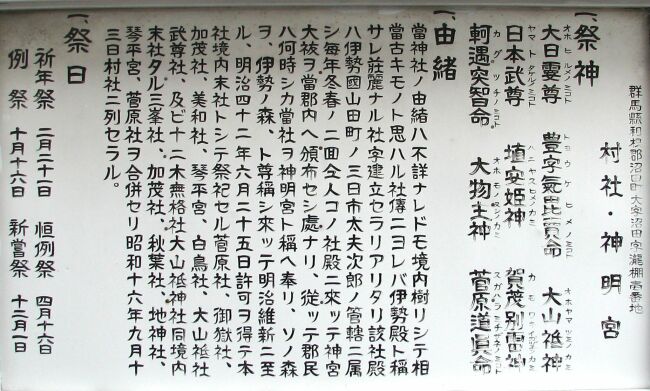 群馬縣利根郡沼田町大字沼田字瀧棚壱番地
村社・神明宮
一、祭神
大日孁尊 豊宇気毘賣命 大山祗神
オホヒルメノミコト トヨウケヒメノミコト オホヤマツミノカミ
日本武尊 埴安姫神 賀茂別雷神
ヤマトタケルノミコト ハニヤスヒメノカミ カモワケイカヅチノカミ
軻遇突智命 大物主神 菅原道眞命
カグツチノミコト オホモノヌシノカミ スガハラミチザネノミコト
一、由緒
當神社ノ由緒ハ不詳ナレドモ境内樹リシテ相
當古キモノト思ハル社傳ニヨレバ伊勢殿ト稱
サレ荘麗ナル社宇建立セラリアリタリ該社殿
ハ伊勢國山田町ノ三日市太夫次郎ノ管轄ニ属
シ毎年冬春ノ二回仝人コノ社殿ニ來ッテ神宮
大祓ヲ當郡内ヘ頒布セシ處ナリ、從ッテ郡民
ハ何時シカ當社ヲ神明宮ト稱ヘ奉リ、ソノ森
ヲ、伊勢ノ森、ト尊稱シ來ッテ明治維新ニ至
ル、明治四十二年六月二十五日許可ヲ得テ本
社境内末社トシテ祭祀セル菅原社、御嶽社、
加茂社、美和社、琴平宮、白鳥社、大山祗社
武尊社、及ビ十二木無格社大山祗神社同境内
末社タル三峯社、加茂社、秋葉社、地神社、
琴平宮、菅原社ヲ合併セリ昭和十六年九月十
三日村社ニ列セラル。
一、祭日
祈年祭 二月二十一日 恒例祭 四月十六日
例祭 十月十六日 新嘗祭 十二月一日